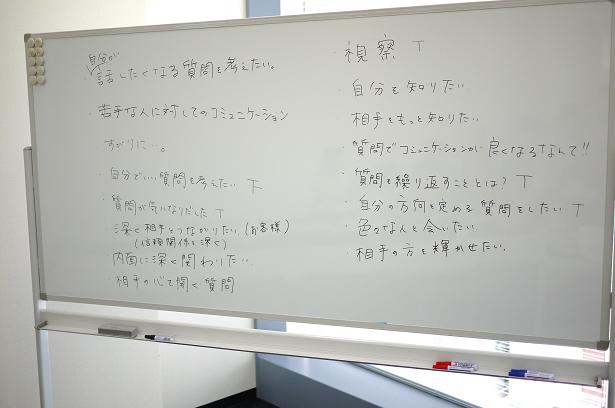 自分が
話したくなる質問を考えたい。
・苦手な人に対してのコミュニケーション
すがりに…。
・自分でいい質問を考えたい T
・質問が気になりだした T
・深く相手とつながりたい。(お客様)
(信頼関係を深く)
内面に深く関わりたい。
・相手の心を開く質問
・視察 T
・自分を知りたい
相手をもっと知りたい
・質問でコミュニケーションが良くなるなんて!!
・質問を繰り返すこととは? T
・自分の方向を定める質問をしたい T
・色々な人と会いたい。
・相手の方を輝かせたい。